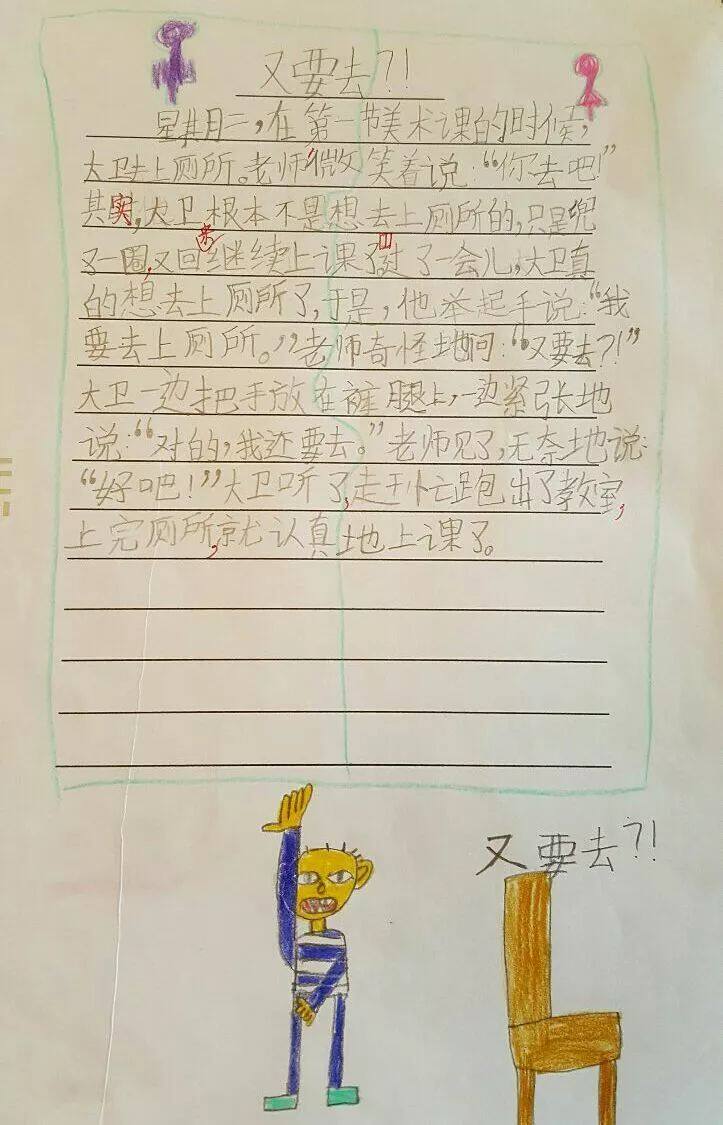 又要去?!
星期二,在第一节美术课的时候,
大卫去上厕所。老师微笑着说:“你去吧!”
其实,大卫根本不是想去上厕所的,只是兜
了一圈,又回来继续上课了。过了一会儿,大卫真
的想去上厕所了,于是,他举起手说:“我
要去上厕所。”老师奇怪地问:“又要去?!”
大卫一边把手放在裤腿上,一边紧张地
说:“对的,我还要去。”老师见了,无奈地说:
“好吧!”大卫听了,赶忙跑出了教室,
上完厕所,就认真地上课了。
又要去?!